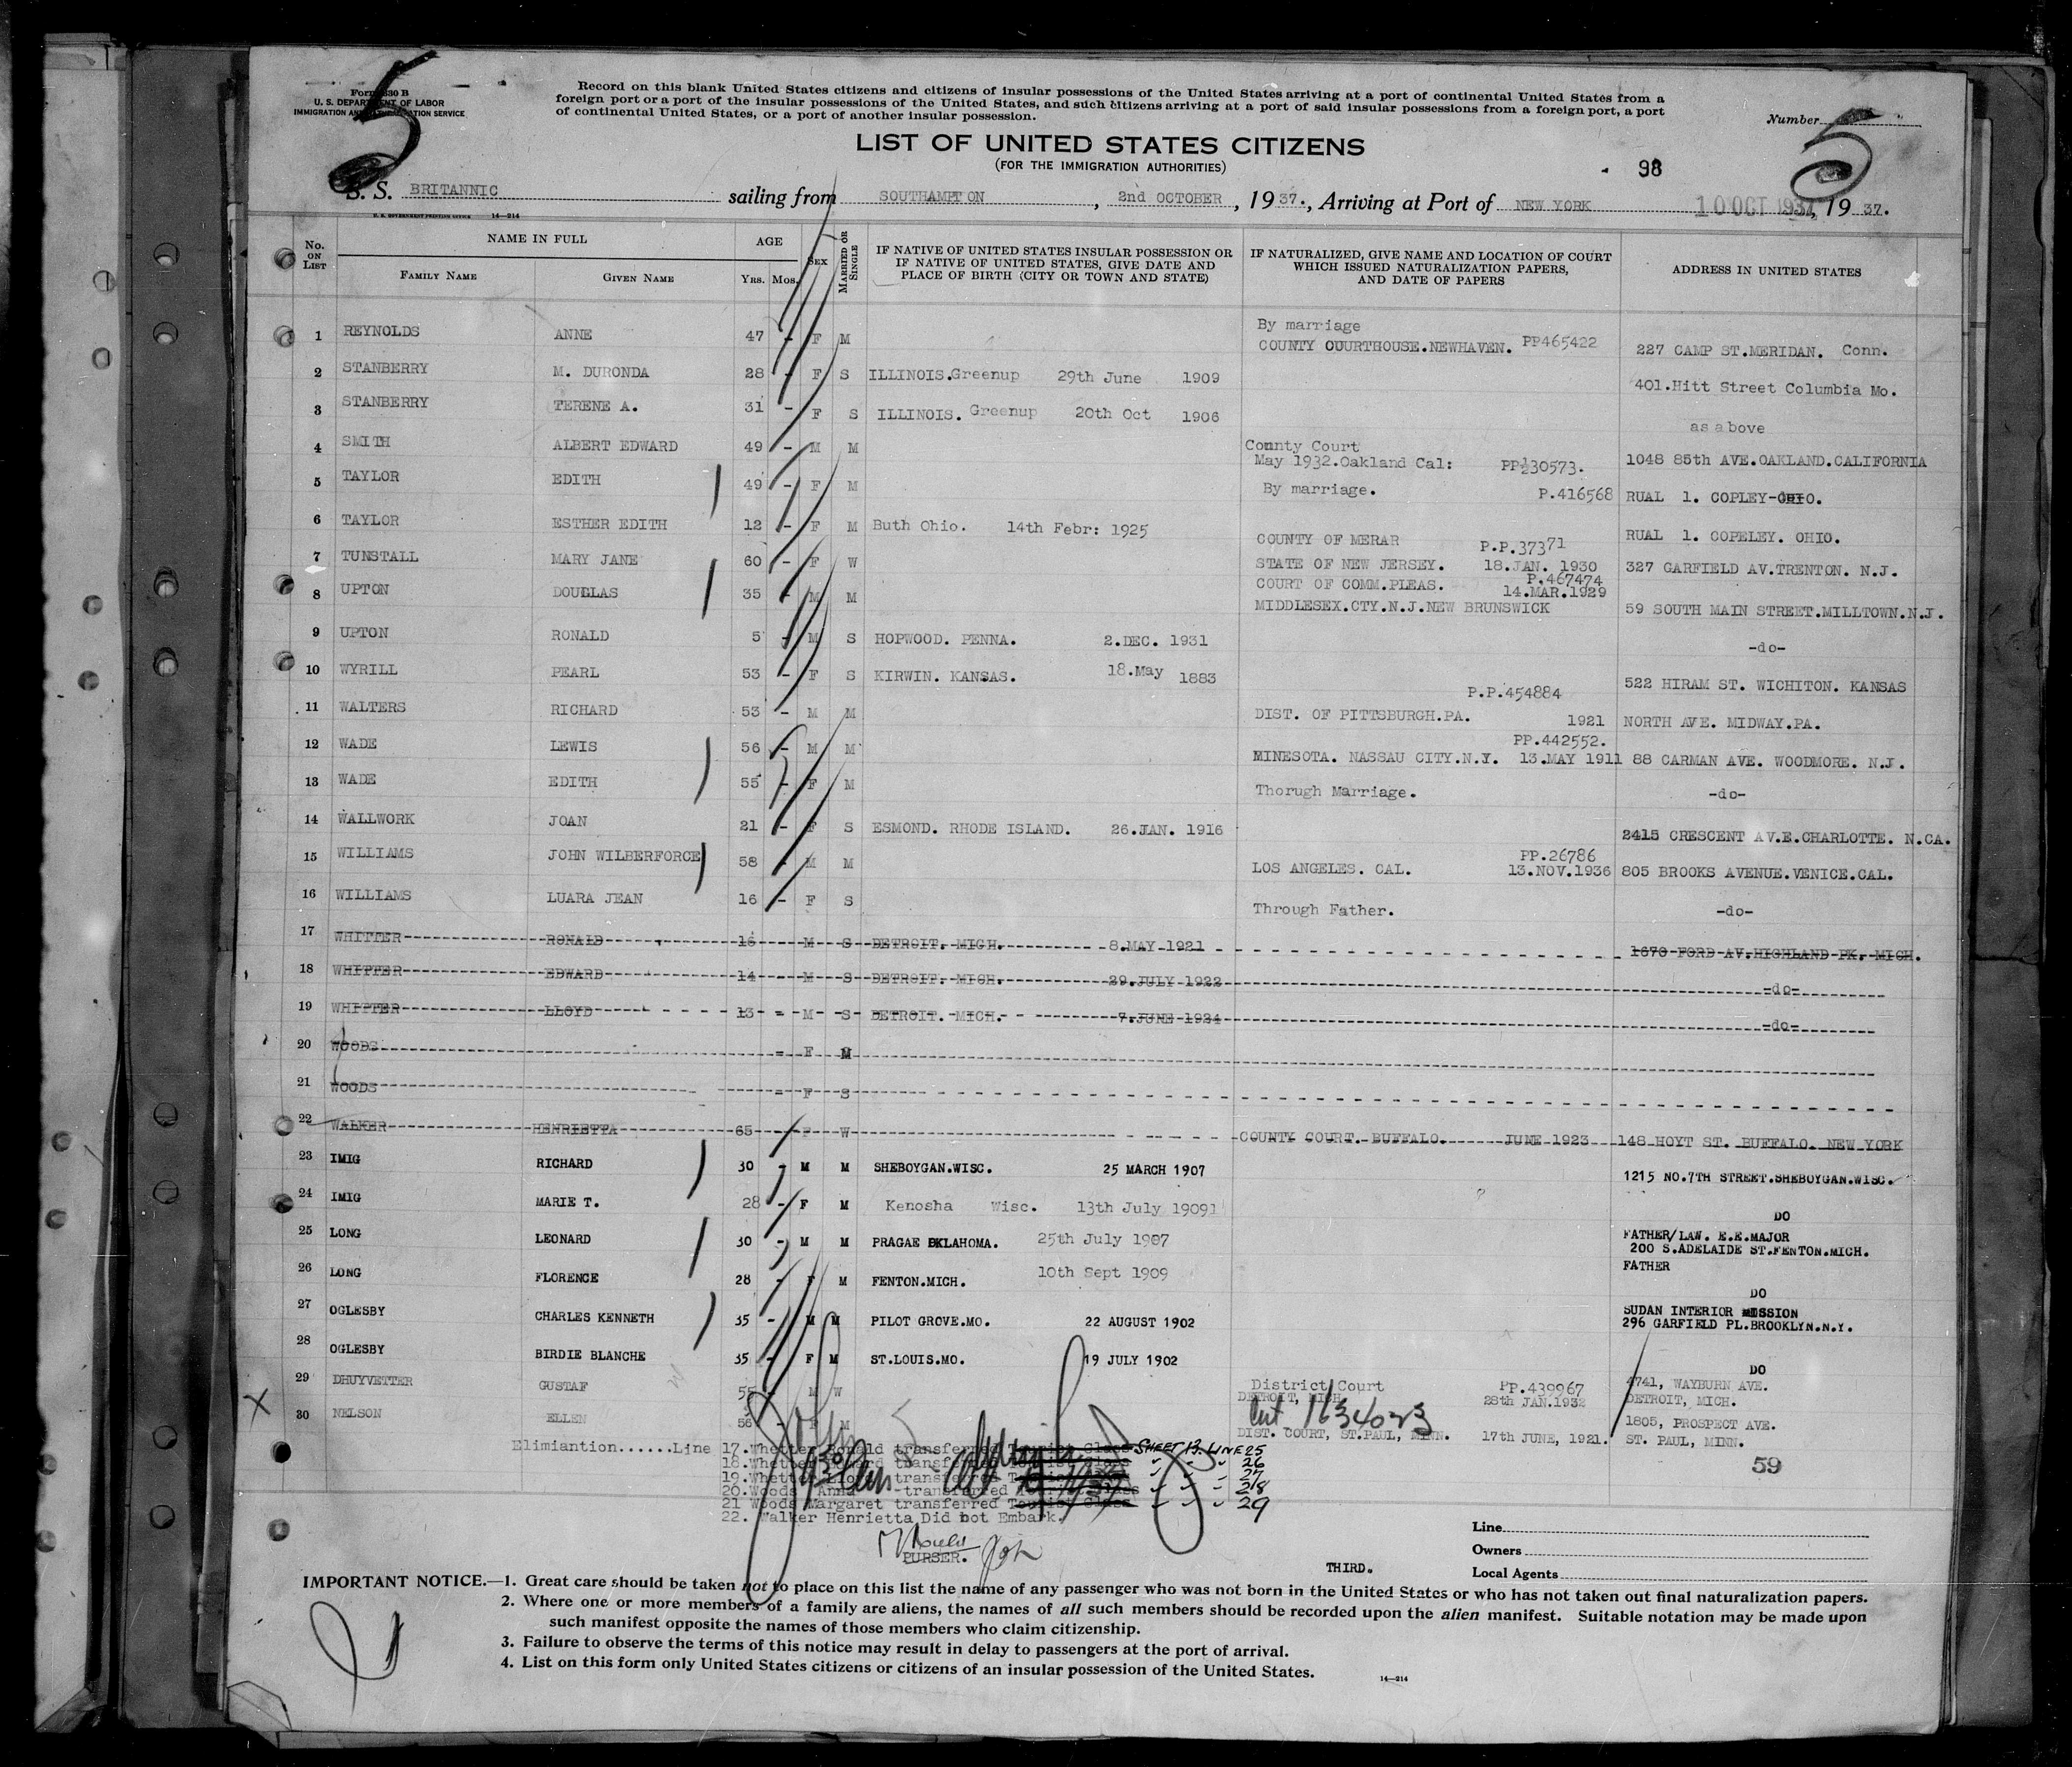 5
Form 630 B
U. S. DEPARTMENT OF LABOR
IMMIGRATION AND NATURALIZATION SERVICE
Record on this blank United States citizens and citizens of insular possessions of the United States arriving at a port of continental United States from a
foreign port or a port of the insular possessions of the United States, and such citizens arriving at a port of said insular possessions from a foreign port, a port
of continental United States, or a port of another insular possession.
Number 5
LIST OF UNITED STATES CITIZENS
(FOR THE IMMIGRATION AUTHORITIES)
98
S. S. BRITANNIC sailing from SOUTHAMPTON, 2nd OCTOBER, 1937., Arriving at Port of NEW YORK 10 OCT 1937, 1937.
U. S. GOVERNMENT PRINTING OFFICE 14—214
No. ON LIST
NAME IN FULL
FAMILY NAME GIVEN NAME
AGE
Yrs. Mos.
SEX
MARRIED OR SINGLE
IF NATIVE OF UNITED STATES INSULAR POSSESSION OR
IF NATIVE OF UNITED STATES, GIVE DATE AND
PLACE OF BIRTH (CITY OR TOWN AND STATE)
IF NATURALIZED, GIVE NAME AND LOCATION OF COURT
WHICH ISSUED NATURALIZATION PAPERS,
AND DATE OF PAPERS
ADDRESS IN UNITED STATES
1 REYNOLDS ANNE 47 - F M By marriage
COUNTY COURTHOUSE.NEWHAVEN. PP465422 227 CAMP ST.MERIDAN. Conn.
2 STANBERRY M. DURONDA 28 - F S ILLINOIS.Greenup 29th June 1909 401.Hitt Street Columbia Mo.
3 STANBERRY TERENE A. 31 - F S ILLINOIS. Greenup 20th Oct 1906 as above
4 SMITH ALBERT EDWARD 49 - M M County Court
May 1932.Oakland Cal: PP230573. 1048 85th AVE.OAKLAND.CALIFORNIA
5 TAYLOR EDITH 49 - F M By marriage. P.416568 RUAL 1. COPLEY-OHIO.
6 TAYLOR ESTHER EDITH 12 - F M Buth Ohio. 14th Febr: 1925 RUAL 1. COPELEY. OHIO.
7 TUNSTALL MARY JANE 60 - F W COUNTY OF MERAR P.P.37371
STATE OF NEW JERSEY. 18.JAN. 1930 327 GARFIELD AV.TRENTON. N.J.
8 UPTON DOUGLAS 35 - M M COURT OF COMM.PLEAS. P.467474
14.MAR.1929
MIDDLESEX.CTY.N.J.NEW BRUNSWICK 59 SOUTH MAIN STREET.MILLTOWN.N.J.
9 UPTON RONALD 5 - M S HOPWOOD. PENNA. 2.DEC. 1931 -do-
10 WYRILL PEARL 53 - F S KIRWIN. KANSAS. 18.May 1883 522 HIRAM ST. WICHITON. KANSAS
11 WALTERS RICHARD 53 - M M P.P.454884
DIST. OF PITTSBURGH.PA. 1921 NORTH AVE. MIDWAY.PA.
12 WADE LEWIS 56 - M M PP.442552.
MINESOTA. NASSAU CITY.N.Y. 13.MAY 1911 88 CARMAN AVE. WOODMORE. N.J.
13 WADE EDITH 55 - F M Thorugh Marriage. -do-
14 WALLWORK JOAN 21 - F S ESMOND. RHODE ISLAND. 26.JAN. 1916 2415 CRESCENT AV.E.CHARLOTTE. N.CA.
15 WILLIAMS JOHN WILBERFORCE 58 - M M PP.26786
LOS ANGELES. CAL. 13.NOV.1936 805 BROOKS AVENUE.VENICE.CAL.
16 WILLIAMS LUARA JEAN 16 - F S Through Father. -do-
17 WHITTER RONALD 16 M S DETROIT. MICH. 8.MAY 1921 1670 FORD AV.HIGHLAND PK. MICH.
18 WHITTER EDWARD 14 - M S DETROIT. MICH. 29.JULY 1922 -do-
19 WHITTER LLOYD 13 - M S DETROIT. MICH. 7.JUNE 1924 -do-
20 WOODS - F M
21 WOODS - F S
22 WALKER HENRIETTA 65 - F W COUNTY COURT. BUFFALO. JUNE 1923 148 HOYT ST. BUFFALO. NEW YORK
23 IMIG RICHARD 30 - M M SHEBOYGAN.WISC. 25 MARCH 1907 1215 NO.7TH STREET.SHEBOYGAN.WISC.
24 IMIG MARIE T. 28 - F M Kenosha Wisc. 13th July 1909 DO
25 LONG LEONARD 30 - M M PRAGAE OKLAHOMA. 25th July 1907 FATHER/LAW. E.E.MAJOR
200 S.ADELAIDE ST.FENTON.MICH.
26 LONG FLORENCE 28 - F M FENTON.MICH. 10th Sept 1909 FATHER
DO
27 OGLESBY CHARLES KENNETH 35 - M M PILOT GROVE.MO. 22 AUGUST 1902 SUDAN INTERIOR MISSION
296 GARFIELD PL.BROOKLYN.N.Y.
28 OGLESBY BIRDIE BLANCHE 35 - F M ST.LOUIS.MO. 19 JULY 1902 DO
29 DHUYVETTER GUSTAF 55 - M W District Court PP.439967 4741, WAYBURN AVE.
DETROIT, MICH. 28th JAN.1932 DETROIT, MICH.
X 30 NELSON ELLEN 56 F M 1634023 1805, PROSPECT AVE.
DIST. COURT, ST.PAUL, MINN. 17th JUNE, 1921. ST. PAUL, MINN.
Elimiantion......Line 17.Whetter Ronald transferred Tourist Class SHEET 13. LINE 25
18.Whetter Edward transferred Tourist Class " " " 26
19.Whetter Lloyd transferred " " " 27
20.Woods Anna transferred Tourist Class " " " 28
21 Woods Margaret transferred Tourist Class " " " 29
22. Walker Henrietta Did not Embark.
59
PURSER.
THIRD.
Line
Owners
Local Agents
IMPORTANT NOTICE.—1. Great care should be taken not to place on this list the name of any passenger who was not born in the United States or who has not taken out final naturalization papers.
2. Where one or more members of a family are aliens, the names of all such members should be recorded upon the alien manifest. Suitable notation may be made upon
such manifest opposite the names of those members who claim citizenship.
3. Failure to observe the terms of this notice may result in delay to passengers at the port of arrival.
4. List on this form only United States citizens or citizens of an insular possession of the United States.
14—214